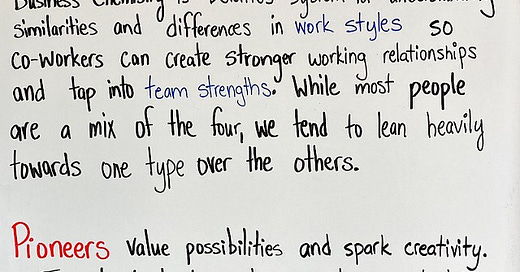 Business Chemistry is Deloitte's system for understanding
similarities and differences in work styles so
co-workers can create stronger working relationships
and tap into team strengths. While most people
are a mix of the four, we tend to lean heavily
towards one type over the others.
Pioneers value possibilities and spark creativity.